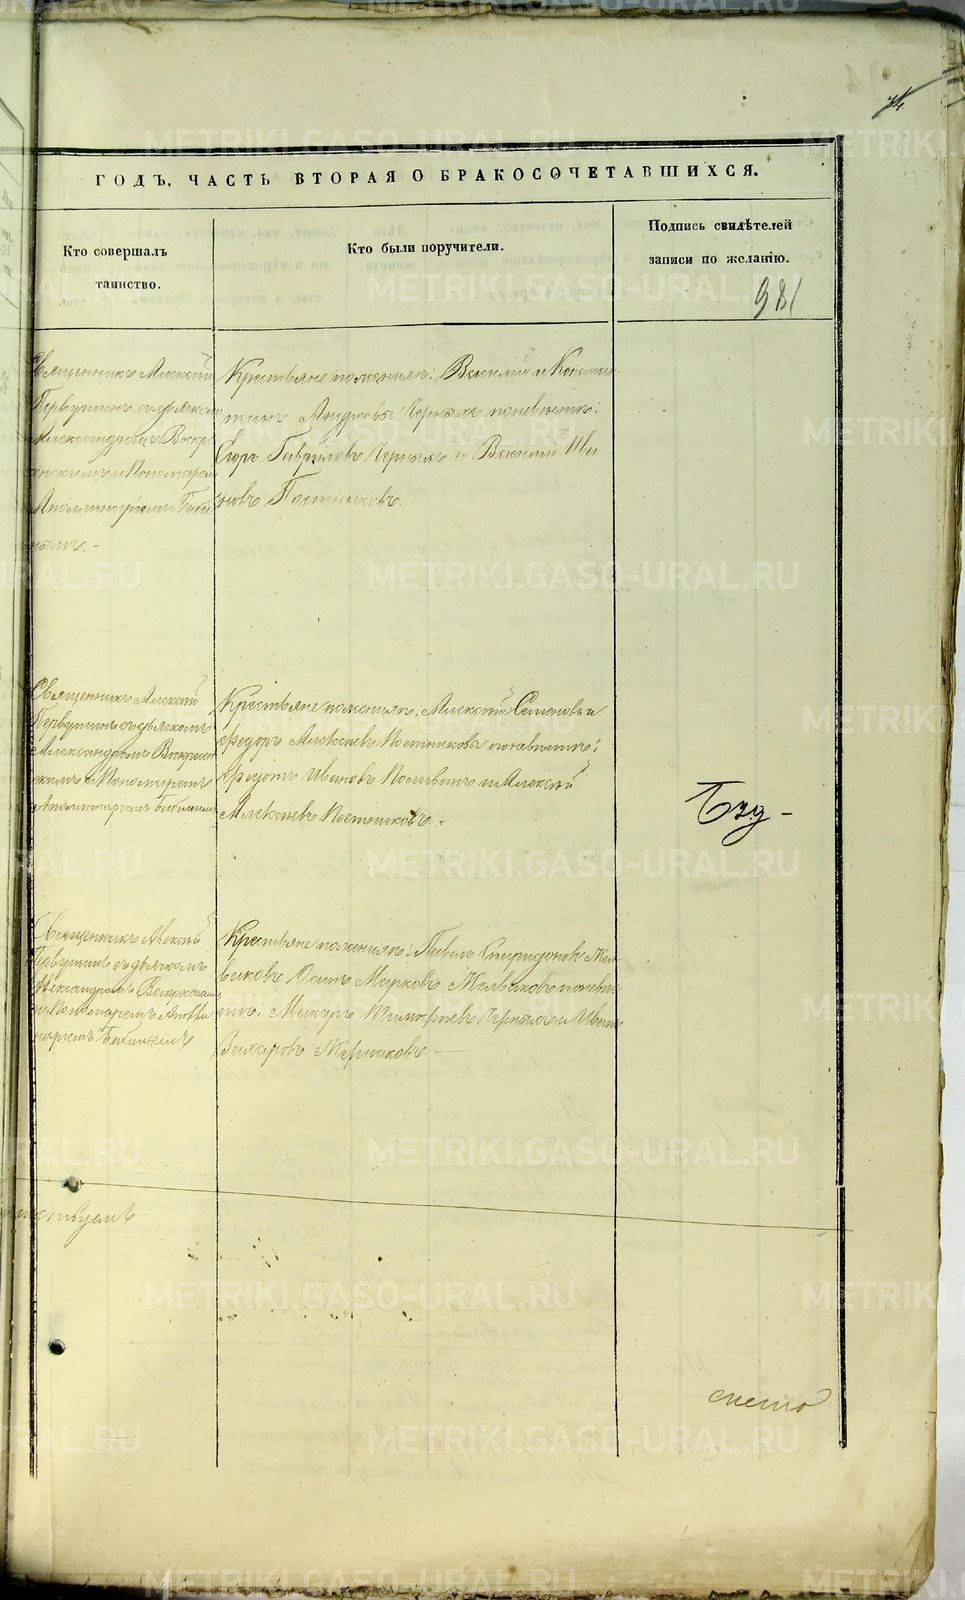 ГОДЪ, ЧАСТЬ ВТОРАЯ О БРАКОСОЧЕТАВШИХСЯ.
Кто совершалъ
таинство.
Кто были поручители.
Подпись свидѣтелей
записи по желанію.
981
Священникъ Алексѣй
Первушинъ съ дьячкомъ
Александромъ Воскре
сенскимъ и Пономаремъ
Аполлинаріемъ Баби
нымъ. -
Крестьяне по женихѣ: Василій и Констан
тинъ Андреевы Черныхъ по невѣстѣ:
Егоръ Гавриловъ Черныхъ и Василій Ива
новъ Постниковъ.
Священникъ Алексѣй
Первушинъ съ дьячкомъ
Александромъ Воскресен
скимъ и Пономаремъ
Аполлинаріемъ Бабинымъ
Крестьяне по женихѣ: Алексѣй Семеновъ и
Федоръ Алексѣевъ Постниковы по невѣстѣ:
Федотъ Ивановъ и Алексѣй
Алексѣевъ Постниковъ. -
Священникъ Алексѣй
Первушинъ съ дьячкомъ
Александромъ Воскресенскимъ
и Пономаремъ Аполли
наріемъ Бабинымъ
Крестьяне по женихѣ: Павелъ Спиридоновъ Жел
ваковъ Осипъ Марковъ Желваковъ по невѣс
тѣ: Макаръ Тимофеевъ Черныхъ и Иванъ
Захаровъ
METRIKI.GASO-URAL.RU